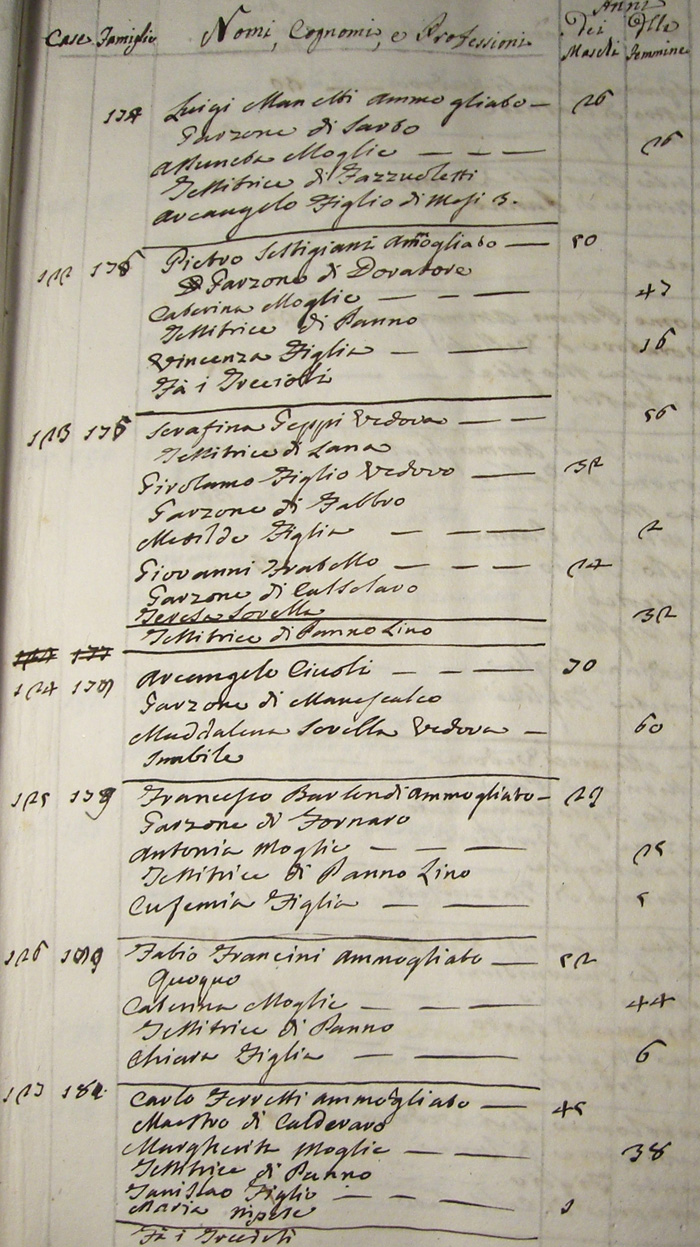 Anni
Case Famiglie Nomi, Cognomi, e Professioni Dei Delle
Maschi Femmine
174 Luigi Manetti Ammogliato — 26
Garzone di Sarto
Assunta Moglie — — — 26
Tessitrice di Fazzoletti
Arcangelo Figlio di Mesi 3.
122 175 Pietro Settigiani Amogliato — 50
Garzone di Doratore
Caterina Moglie — — — 47
Tessitrice di Panno
Vincenza Figlia — — 16
Fà i Trecioli
123 176 Serafina Geppi Vedova — — 56
Tessitrice di Lana
Girolamo Figlio Vedovo — — 32
Garzone di Fabbro
Metilde Figlia — — — 2
Giovanni Fratello — — — 24
Garzone di Calsolaro
Teresa Sorella 32
Tessitrice di Panno Lino
124 Arcangelo Ciucoli — — — 70
Garzone di Manescalco
Maddalena Sorella Vedova — 60
Inabile
125 Francesco Ammogliato — 29
Garzone di Fornaro
Antonia Moglie — — — 25
Tessitrice di Panno Lino
Eufemia Figlia — — 5
126 Fabio Francini Ammogliato — 52
Quoquo
Caterina Moglie — — — 44
Tessitrice di Panno
Chiara Figlia — — 6
127 Carlo Ferretti Ammogliato — 45
Maestro di Calderaro
Margherita Moglie — — 38
Tessitrice di Panno
Stanislao Figlio — — — 1
Maria Nipote
Fà i Trecioli